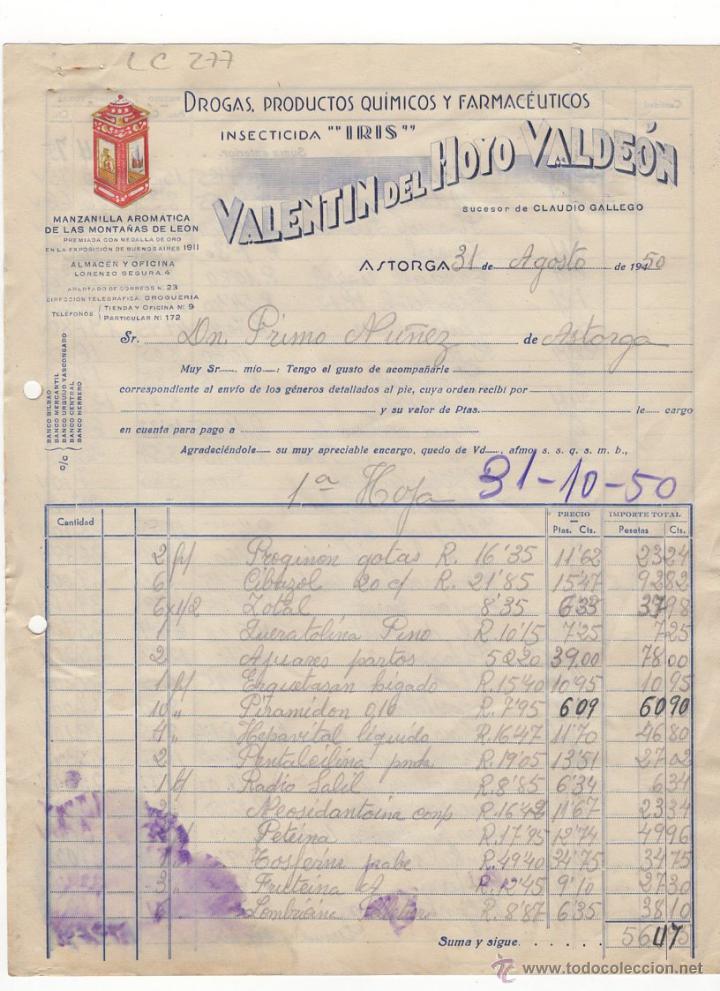 L C 277
DROGAS, PRODUCTOS QUÍMICOS Y FARMACÉUTICOS
INSECTICIDA ""IRIS""
VALENTIN DEL HOYO VALDEÓN
Sucesor de CLAUDIO GALLEGO
MANZANILLA AROMATICA
DE LAS MONTAÑAS DE LEON
PREMIADA CON MEDALLA DE ORO
EN LA EXPOSICIÓN DE BUENOS AIRES 1911
ALMACEN Y OFICINA
LORENZO SEGURA, 4
APARTADO DE CORREOS N. 23
DIRECCION TELEGRAFICA: DROGUERIA
TELÉFONOS TIENDA Y OFICINA Nº 9
PARTICULAR Nº 172
c/c BANCO BILBAO
BANCO MERCANTIL
BANCO URQUIJO VASCONGADO
BANCO CENTRAL
BANCO HERRERO
ASTORGA 31 de Agosto de 1950
Sr. Dn. Primo Nuñez de Astorga
Muy Sr. mio: Tengo el gusto de acompañarle
correspondiente al envío de los géneros detallados al pie, cuya orden recibí por
y su valor de Ptas. le cargo
en cuenta para pago a
Agradeciéndole su muy apreciable encargo, quedo de Vd., afmo. s. s. q. s. m. b.,
1ª Hoja 31-10-50
Cantidad PRECIO IMPORTE TOTAL
Ptas. Cts. Pesetas Cts.
2 f/ Proginón gotas R. 16'35 11'62 23 24
6 Cibazol 20 c/ R. 21'85 15'47 92 82
6 x 1/2 Zotal 8'35 6'33 37 98
1 Pino R. 10'15 7'25 7 25
2 Ajuares partos 52 20 39,00 78 00
1 f/ hígado R. 15'40 10'95 10 95
10 " Piramidon 0,10 R. 7'95 6 09 60 90
4 " Hepavital liquido R. 16'47 11'70 46 80
2 R. 19'05 13'51 27 02
1 Radio Salil R. 8'85 6'34 6 34
2 Neosidantoina comp R. 16'42 11'67 23 34
Peteina R. 17'95 12'74 49 96
1 R. 49'40 34'75 34 75
3 " Fruteina A R. 12'45 9'10 27 30
6 R. 8'87 6'35 38 10
Suma y sigue 564 75
www.todocoleccion.net